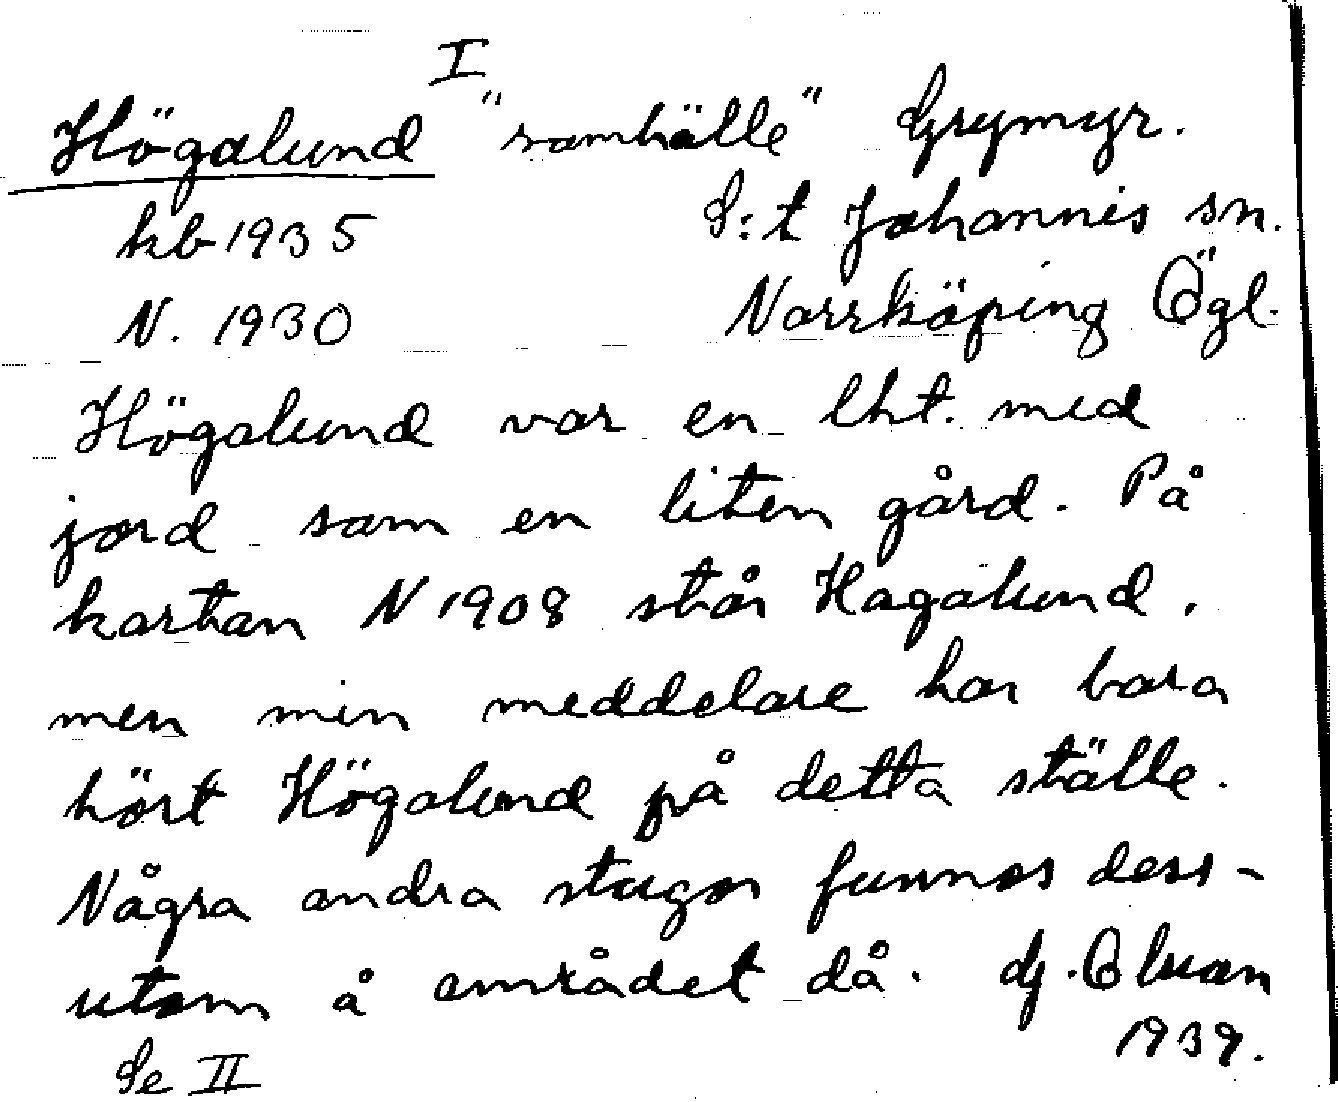 I
Högalund "samhälle" Grymyr.
kb 1935 S:t Johannis sn.
N. 1930 Norrköping Ögl.
Högalund var en lht. med
jord som en liten gård. På
kartan N 1908 står Hagalund,
men min meddelare har bara
hört Högalund på detta ställe.
Några andra stugor funnos dess-
utom å området då. dj.
1939.
Se II